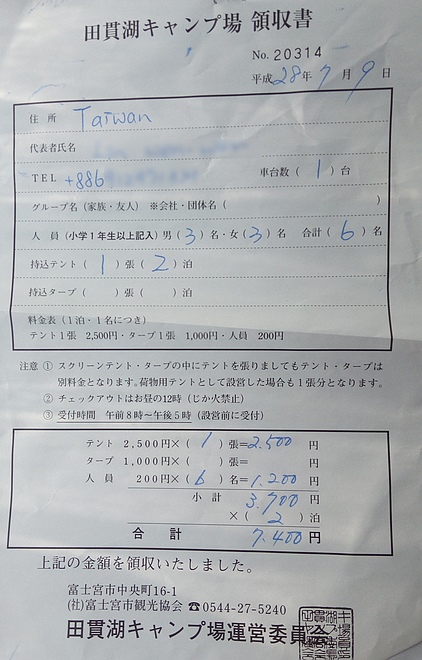 田貫湖キャンプ場 領収書
No. 20314
平成 28年 7月 9日
住所 Taiwan
代表者氏名
TEL +886 車台数 ( 1 ) 台
グループ名 (家族・友人) ※会社・団体名 ( )
人員 (小学1年生以上記入) 男 ( 3 ) 名・女 ( 3 ) 名 合計 ( 6 ) 名
持込テント ( 1 ) 張 ( 2 ) 泊
持込タープ ( ) 張 ( ) 泊
料金表 (1泊・1名につき)
テント1張 2,500円・タープ1張 1,000円・人員 200円
注意 ① スクリーンテント・タープの中にテントを張りましてもテント・タープは
別料金となります。荷物用テントとして設営した場合も1張分となります。
② チェックアウトはお昼の12時 (じか火禁止)
③ 受付時間 午前8時〜午後5時 (設営前に受付)
テント 2,500円× ( 1 ) 張=2.500 円
タープ 1,000円× ( ) 張= 円
人員 200円× ( 6 ) 名=1.200 円
小計 3.700 円
× ( 2 ) 泊
合計 7.400 円
上記の金額を領収いたしました。
富士宮市中央町16-1
(社)富士宮市観光協会 ☎0544-27-5240
田貫湖キャンプ場運営委員会